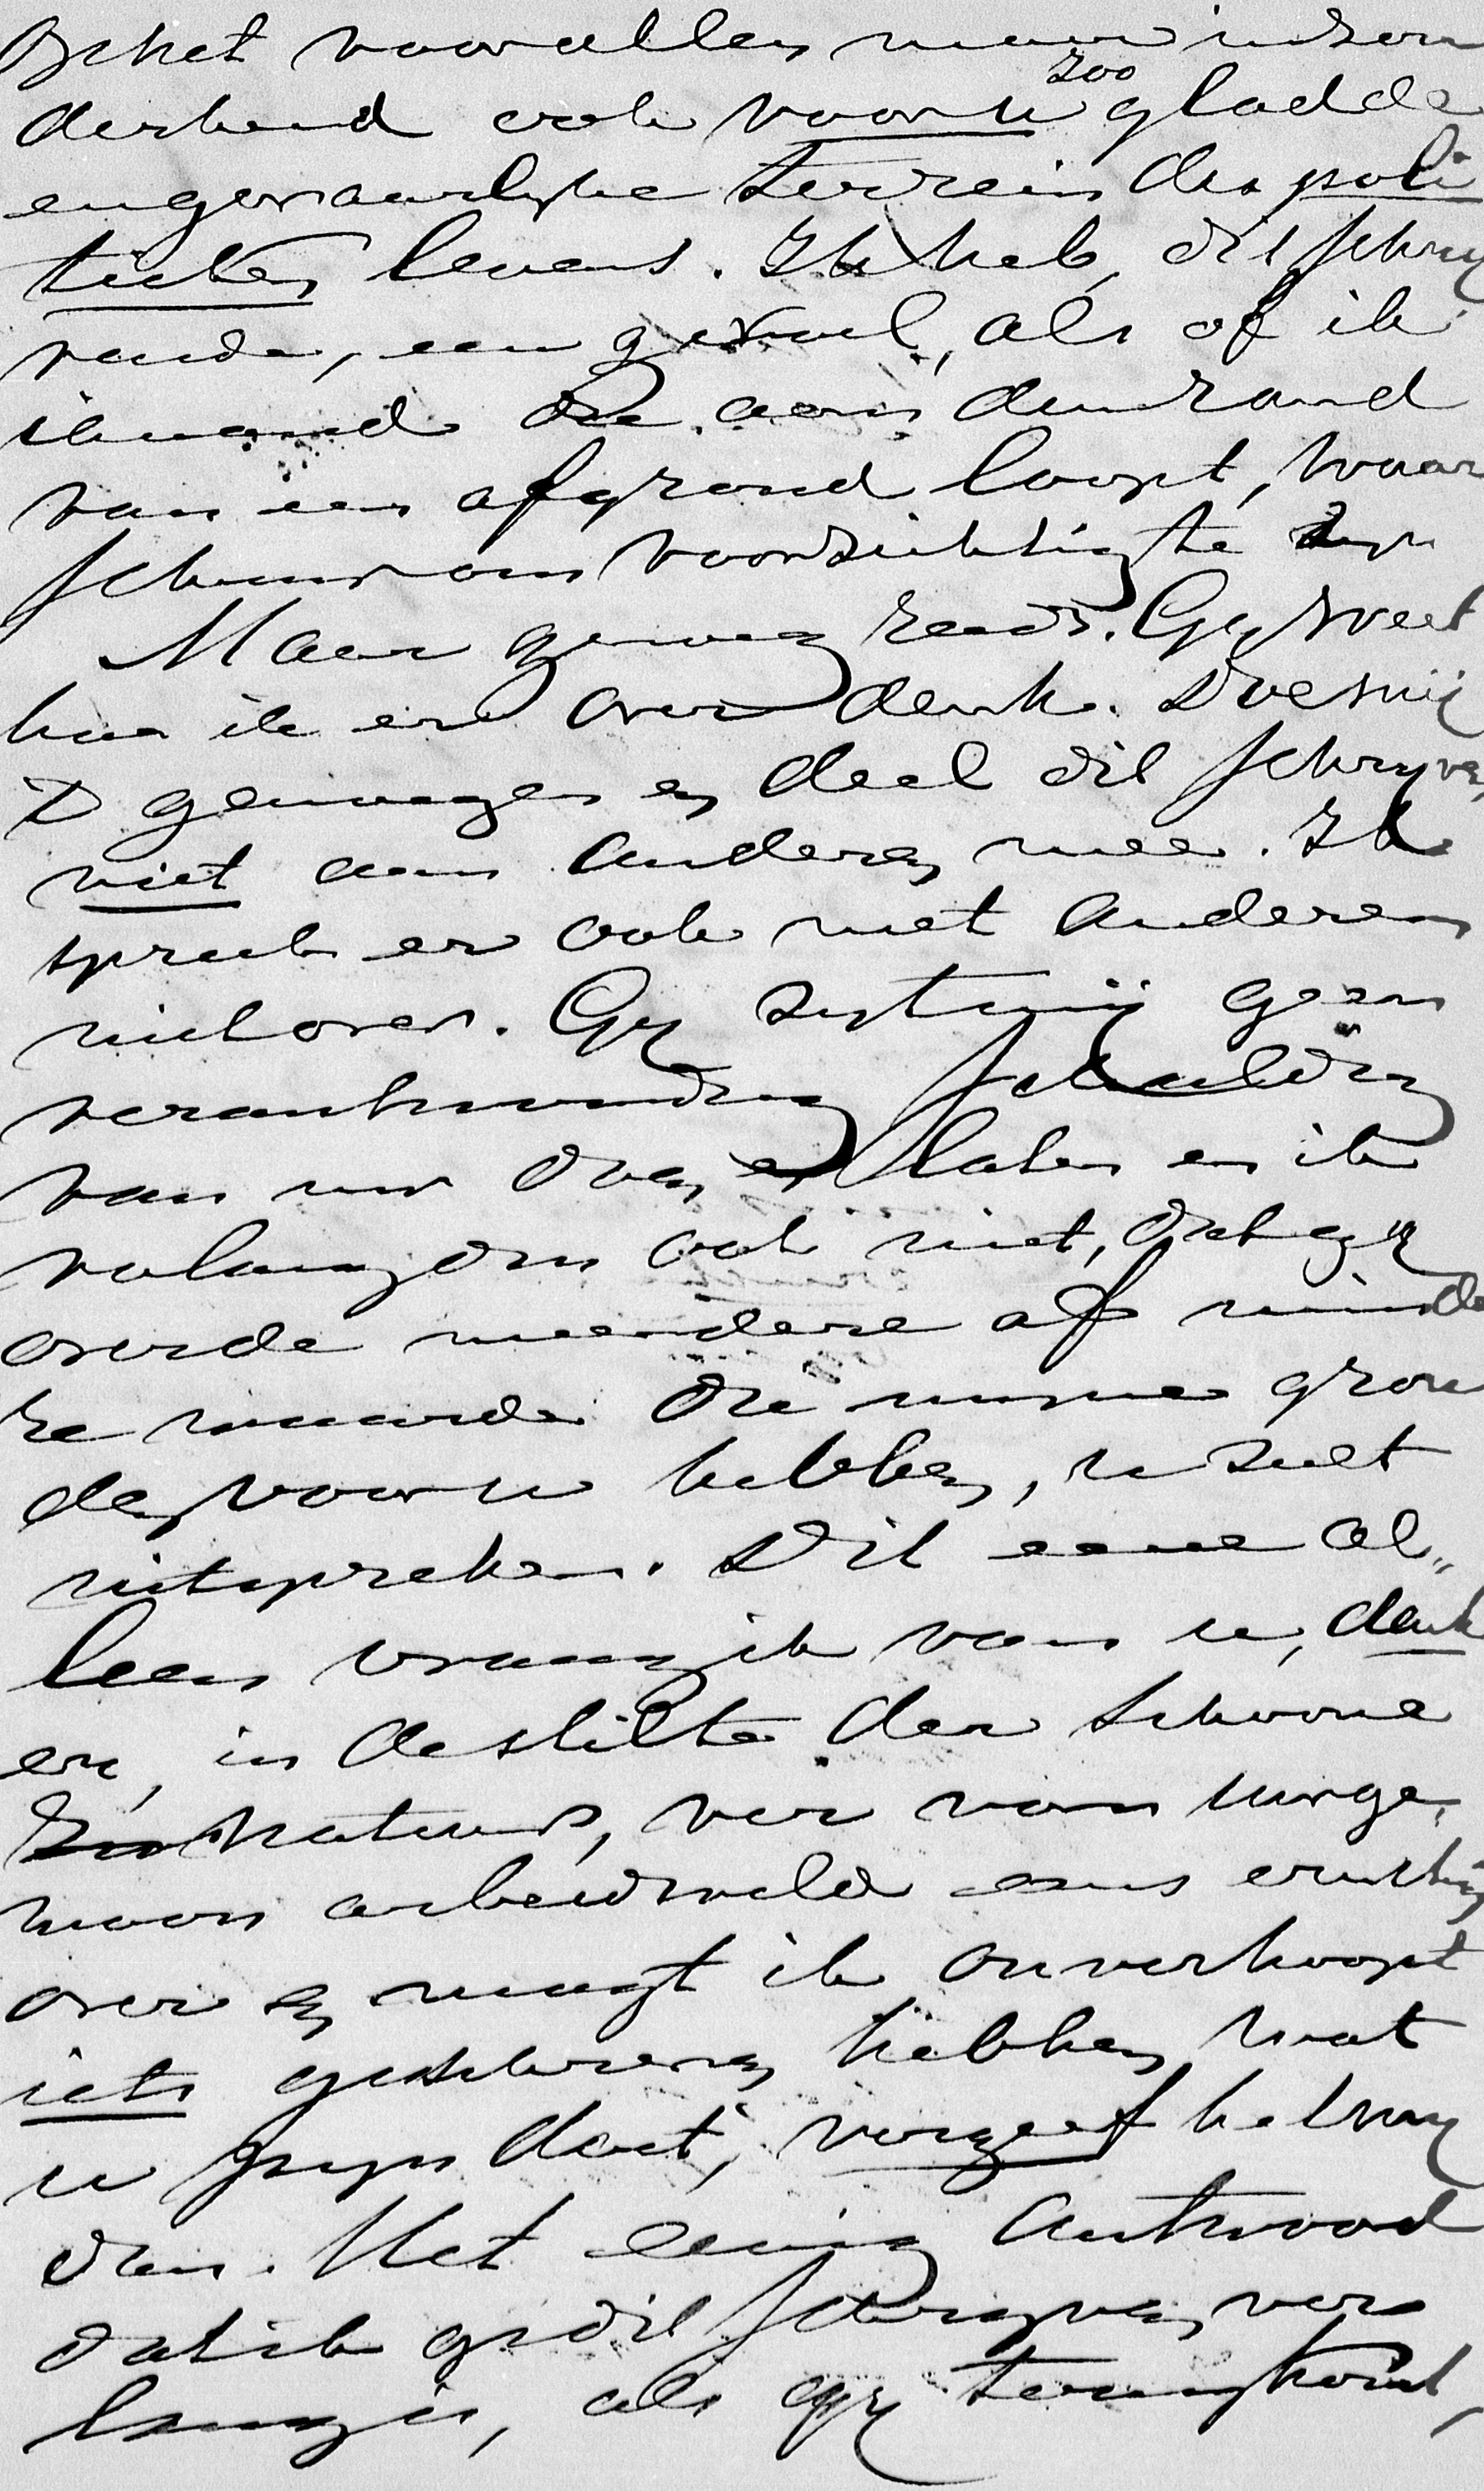 Op het voor allen maar inzon
derheid ook voor u zoo gladde
en gevaarlyke terrein des poli
tieken levens. Ik heb, dit schry
vende, een gevoel, als of ik
iemand die aan den rand
van een afgrond loopt, waar
schuw om voorzichtig te zyn
Maar genoeg reeds. Gy weet
hoe ik er over denk. Doe mij
't genoegen en deel dit schryven
niet aan anderen mee. Ik
spreek er ook met anderen
niet over. Gy zyt mij geen
verantwoording schuldig
van uw doen en laten en ik
verlang dus ook niet, dat gy
over de meerdere of minde
re waarde die myne gron
den voor u hebben, u zult
uitspreken. Dit eene al„
leen vraag ik van u, denk
er, in de stilte der schoone
natuur, ver van uw ge„
woon arbeidsveld eens ernstig
over en mogt ik onverhoopt
iets geschreven hebben wat
u pyn doet, vergeef het my
dan. Het eenig antwoord
dat ik op dit schryven ver
lang is, als gy terugkomt,